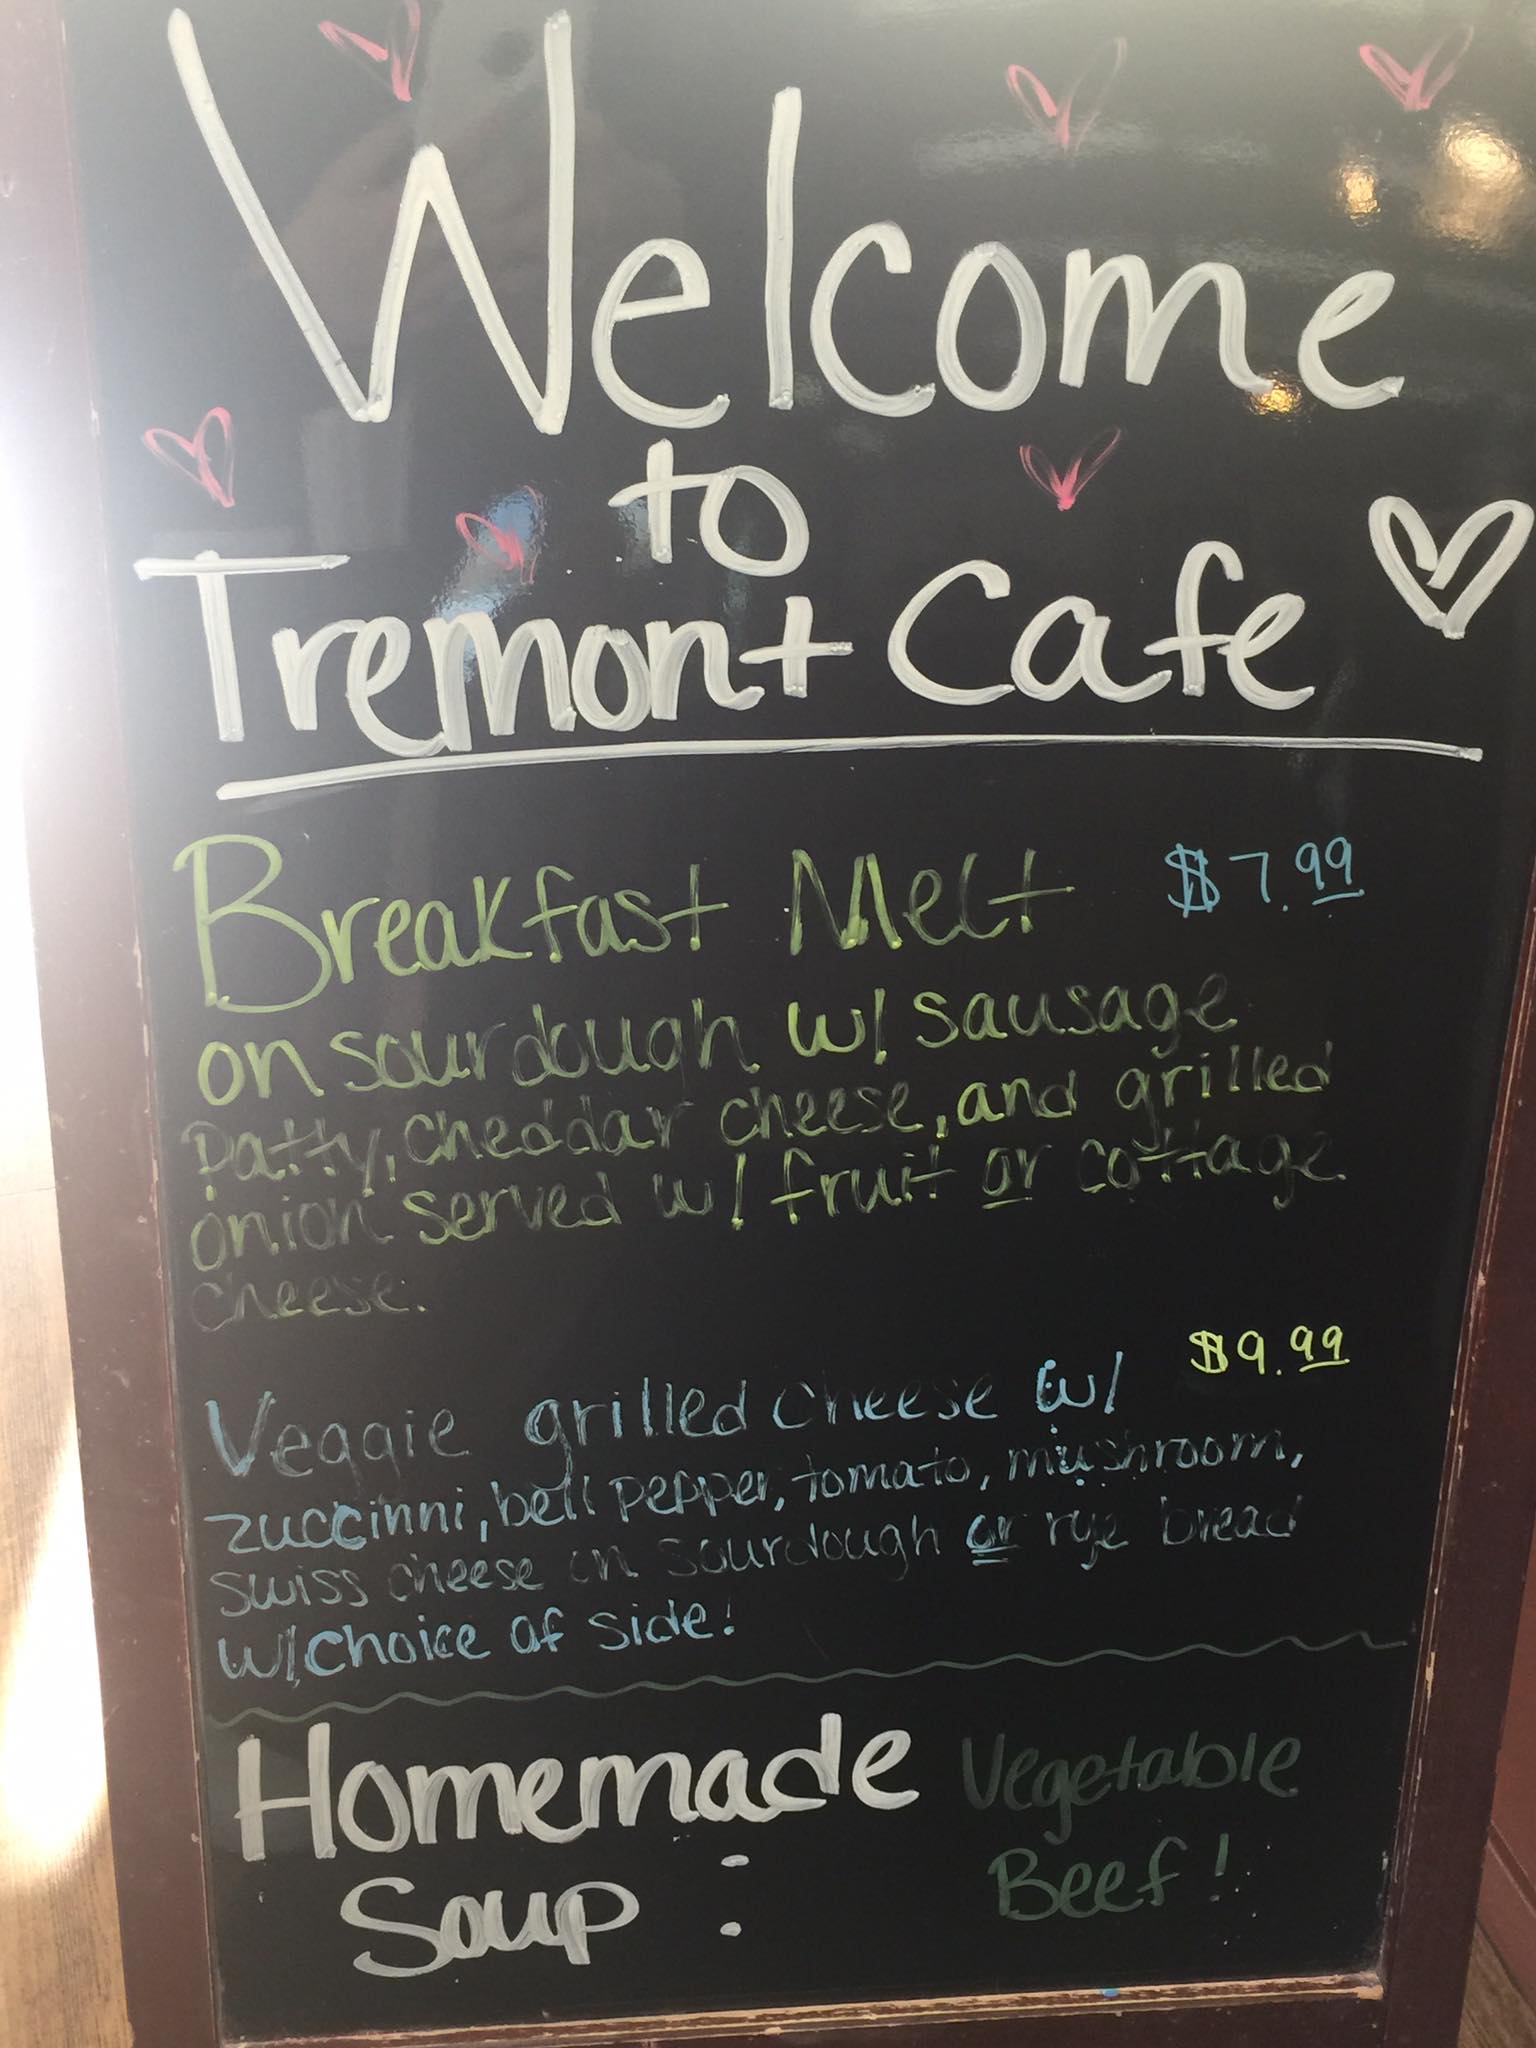 Welcome
to
Tremont Cafe
Breakfast Melt $7.99
on sourdough w/ sausage
patty, cheddar cheese, and grilled
onion served w/ fruit or cottage
cheese.
$9.99
Veggie grilled cheese w/
zuccinni, bell pepper, tomato, mushroom,
swiss cheese on sourdough or rye bread
w/choice of side!
Homemade Vegetable
Soup : Beef!